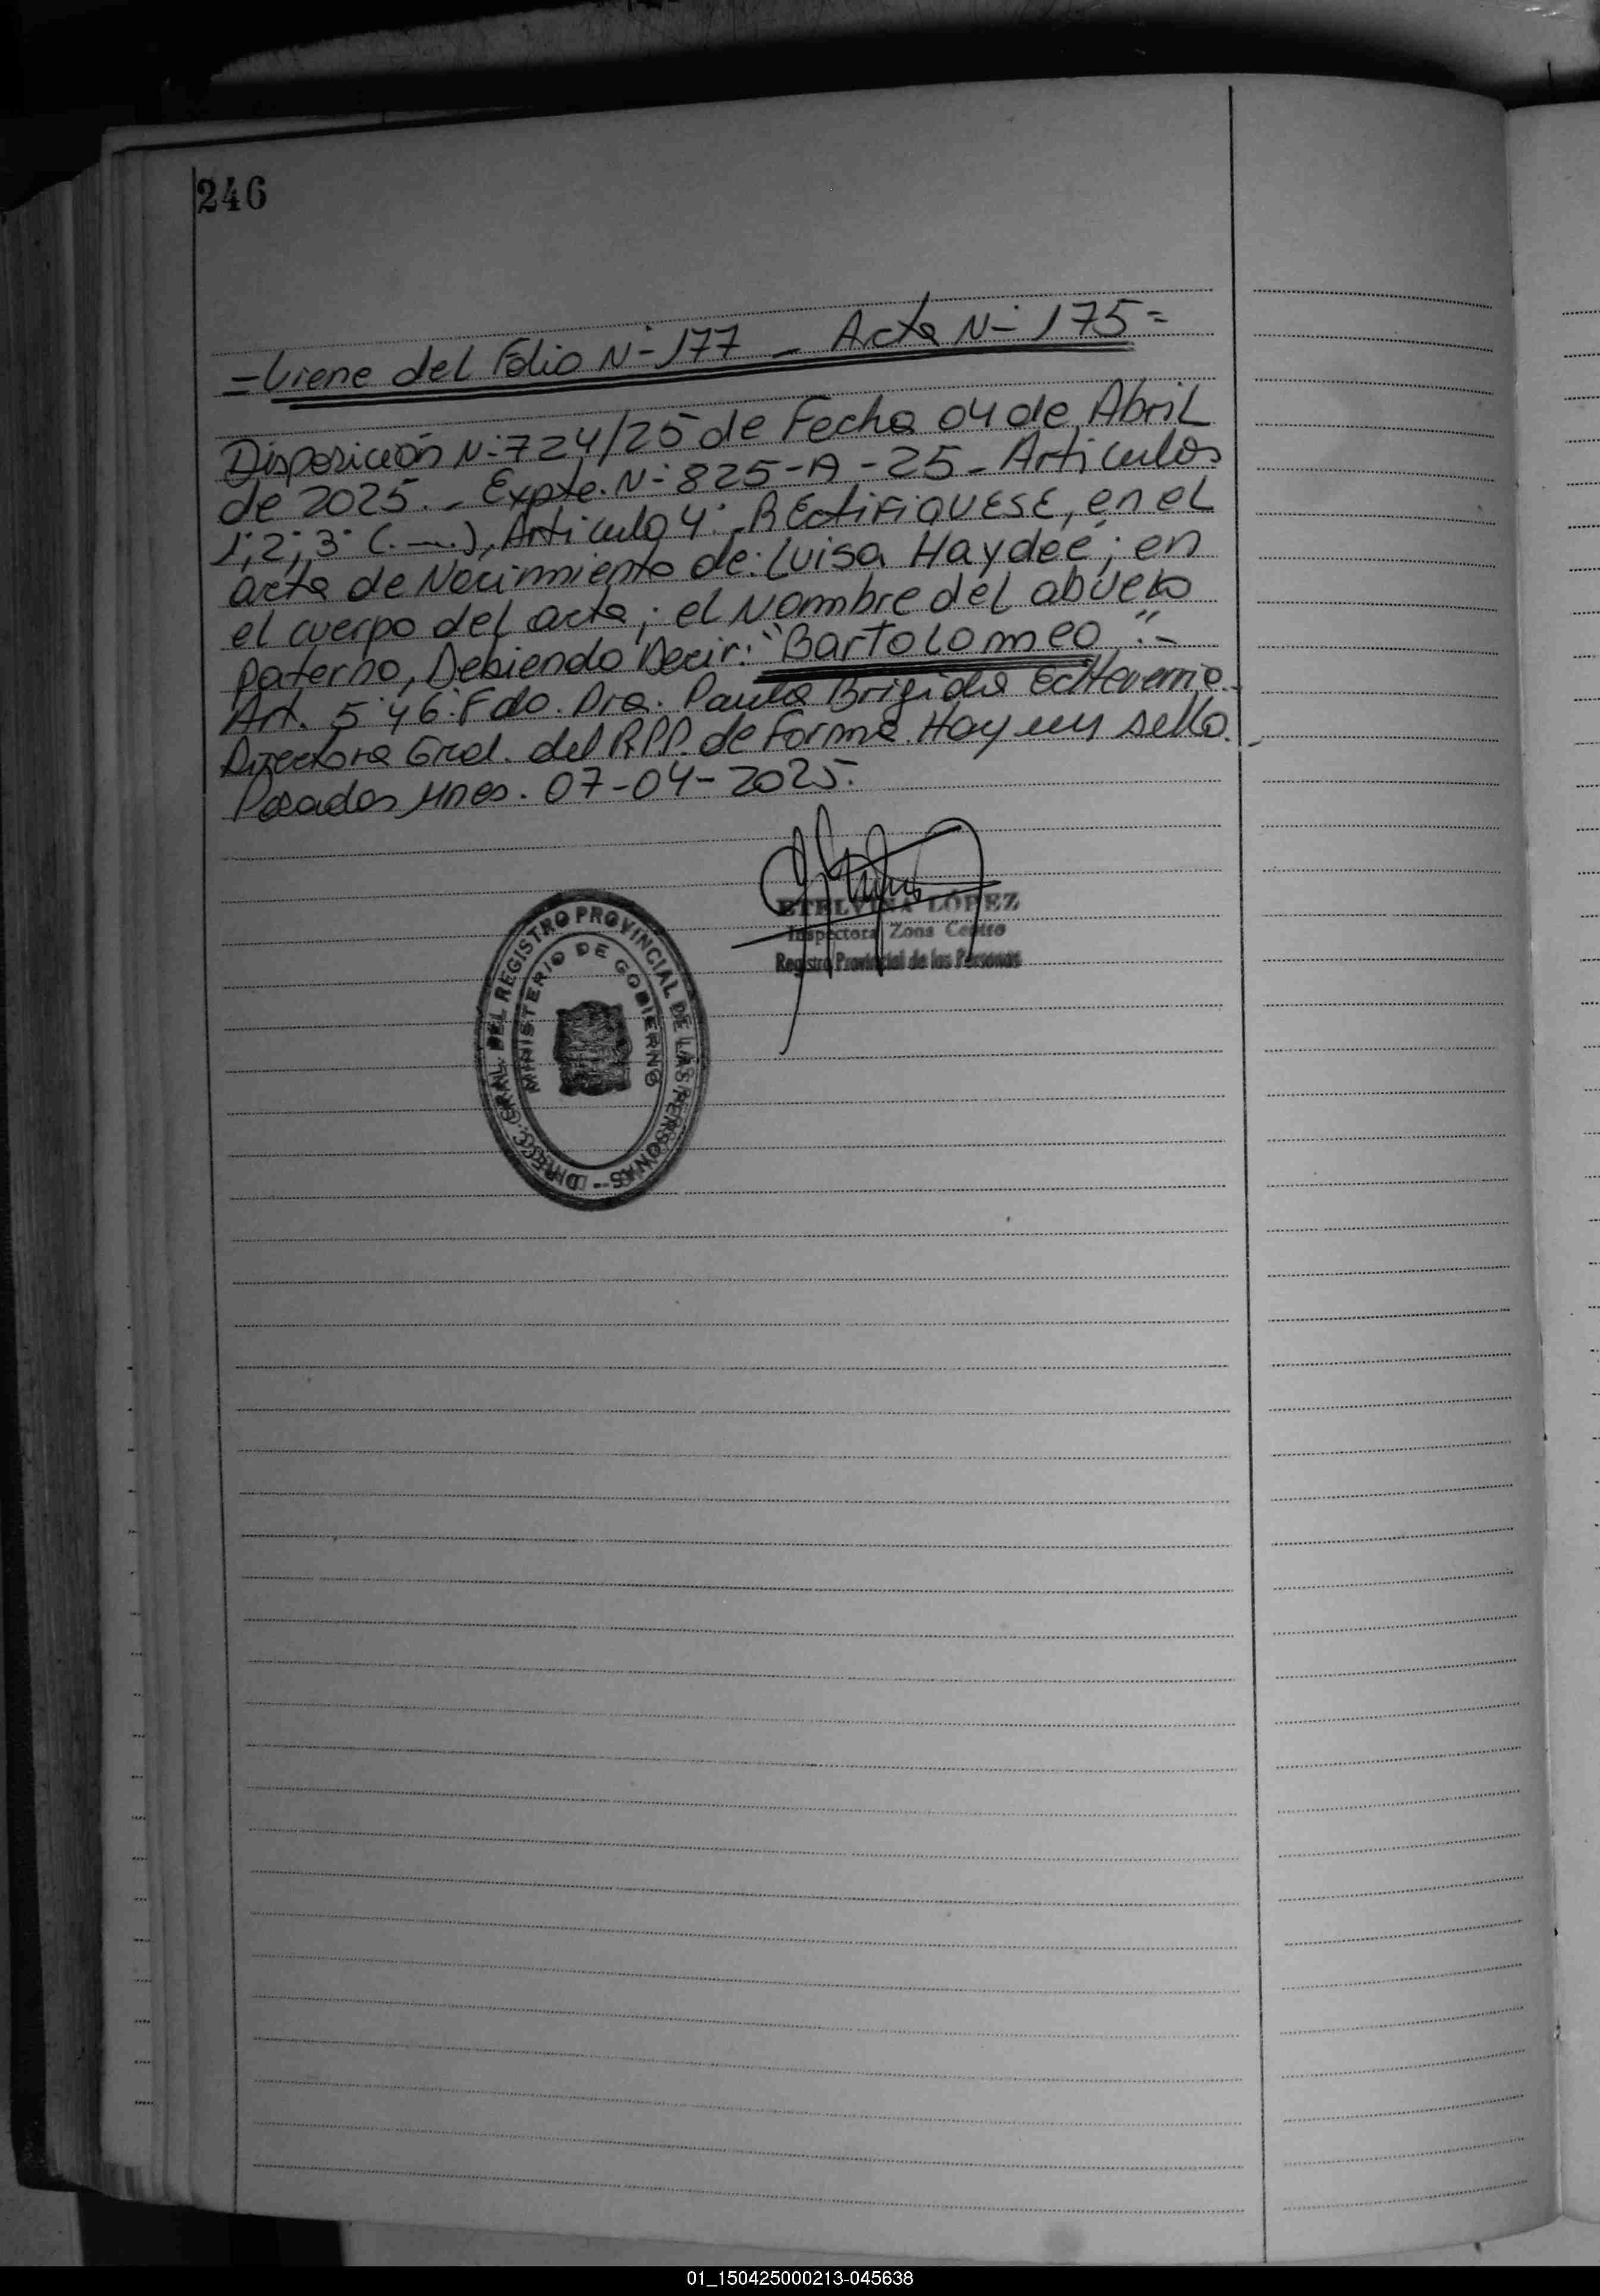 246
=Viene del Folio N° 177 - Acta N° 175=
Disposición N° 724/25 de Fecha 04 de Abril
de 2025.- Expte. N° 825-A-25- Articulos
1°, 2°, 3° (.—.), Articulo 4°- REctiFiQUESE, en el
acta de Nacimiento de: Luisa Haydeé; en
el cuerpo del acta; el Nombre del abuelo
paterno, Debiendo Decir: "BarToLomeo".-
Art. 5° y 6° Fdo. Dra. Paula Brigida Echeverria.-
Directora Gral. del R.P.P. de Forma. Hay un sello.-
Posadas Mnes. 07-04-2025.
ETELVINA LÓPEZ
Inspectora Zona Centro
Registro Provincial de las Personas
DIRECC. GRAL. DEL REGISTRO PROVINCIAL DE LAS PERSONAS -
MINISTERIO DE GOBIERNO
01_150425000213-045638